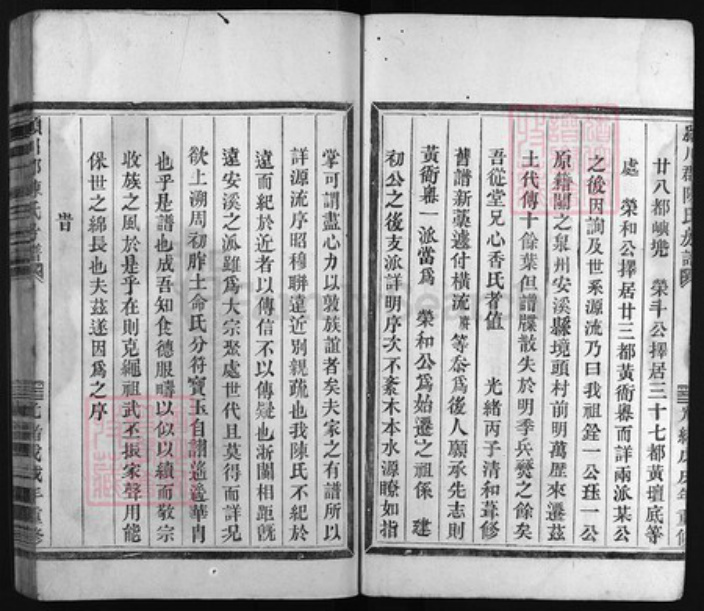 廿八都嶼垗　榮斗公擇居三十七都黃壇底等
處　榮和公擇居廿三都黃衙嶴而詳兩派某公
之後因詢及世系源流乃曰我祖銓一公珏一公
原籍閩之泉州安溪縣境頭村前明萬歷來遷茲
土代傳十餘葉但譜牒散失於明季兵燹之餘矣
吾從堂兄心香氏者值　光緒丙子清和葺修
舊譜新藁遽付橫流等忝為後人願承先志則
黃衙嶴一派當為　榮和公為始遷之祖係　建
初公之後支派詳明序次不紊木本水源瞭如指
掌可謂盡心力以敦族誼者矣夫家之有譜所以
詳源流序昭穆聯遠近別親疏也我陳氏不紀於
遠而紀於近者以傳信不以傳疑也浙閩相距旣
遠安溪之派雖為大宗聚處世代且莫得而詳況
欲上溯周初胙土命氏分符寶玉自謝遙遙華冑
也乎是譜也成吾知食德服疇以似以續而敬宗
收族之風於是乎在則克繩祖武丕振家聲用能
保世之綿長也夫茲遂因為之序
旹
光緒戊戌年重修